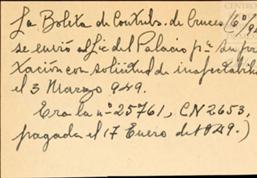 La Boleta de Contrib. de Cruces
se envió al Lic del Palacio pª su
tación con solicitud de inafectabili
el 3 Marzo 949.
Era la nº 25761, CN 2653,
pagada el 17 Enero de 1949.)